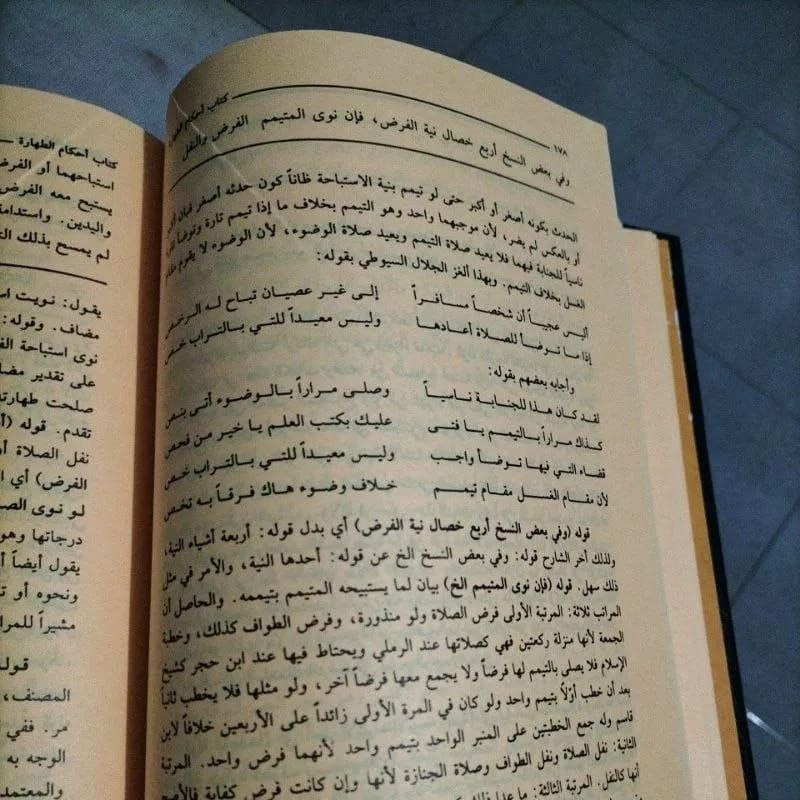 ١٧٨
كتاب أحكام
وفي بعض النسخ أربع خصال نية الفرض، فإن نوى المتيمم الفرض والنفل
الحدث بكونه أصغر أو أكبر حتى لو تيمم بنية الاستباحة ظاناً كون حدثه أصغر فبان أكبر
أو بالعكس لم يضر، لأن موجبهما واحد وهو التيمم بخلاف ما إذا تيمم تارة وتوضأ
ناسياً للجنابة فيهما فلا يعيد صلاة التيمم ويعيد صلاة الوضوء، لأن الوضوء لا يقوم مقام
الغسل بخلاف التيمم. وبهذا ألغز الجلال السيوطي بقوله:
أليس عجيباً أن شخصاً مسافراً إلى غير عصيان تباح له الرخص
إذا ما توضأ للصلاة أعادها وليس معيداً للتي بالتراب خص
وأجابه بعضهم بقوله:
لقد كان هذا للجنابة ناسياً وصلى مراراً بالوضوء أتى بنص
كذاك مراراً بالتيمم يا فتى عليك بكتب العلم يا خير من فحص
قضاء التي فيها توضأ واجب وليس معيداً للتي بالتراب خص
لأن مقام الغسل مقام تيمم خلاف وضوء هاك فرقاً به تخص
قوله (وفي بعض النسخ أربع خصال نية الفرض) أي بدل قوله: أربعة أشياء النية،
ولذلك أخر الشارح قوله: وفي بعض النسخ الخ عن قوله: أحدها النية، والأمر في مثل
ذلك سهل. قوله (فإن نوى المتيمم الخ) بيان لما يستبيحه المتيمم بتيممه. والحاصل أن
المراتب ثلاثة: المرتبة الأولى فرض الصلاة ولو منذورة، وفرض الطواف كذلك، وخطبة
الجمعة لأنها منزلة ركعتين فهي كصلاتها عند الرملي ويحتاط فيها عند ابن حجر كشيخ
الإسلام فلا يصلى بالتيمم لها فرضاً ولا يجمع معها فرضاً آخر، ولو مثلها فلا يخطب ثانياً
بعد أن خطب أوّلاً بتيمم واحد ولو كان في المرة الأولى زائداً على الأربعين خلافاً لابن
قاسم وله جمع الخطبتين على المنبر الواحد بتيمم واحد لأنهما فرض واحد. المرتبة
الثانية: نفل الصلاة ونفل الطواف وصلاة الجنازة لأنها وإن كانت فرض كفاية فالأصح
أنها كالنفل. المرتبة الثالثة: ما عدا ذلك
كتاب أحكام الطهارة
استباحتهما أو الفرض
يستبح معه الفرض
واليدين. واستدامة
لم يمسح بذلك
يقول: نويت
مضاف. وقوله:
نوى استباحة
على تقدير
صلحت
تقدم. قوله
نفل الصلاة
الفرض) أي
لو نوى
درجاتها وهو
يقول أيضاً
ونحوه أو
مشيراً
المصنف،
مر. ففي
الوجه به
والمعتمد